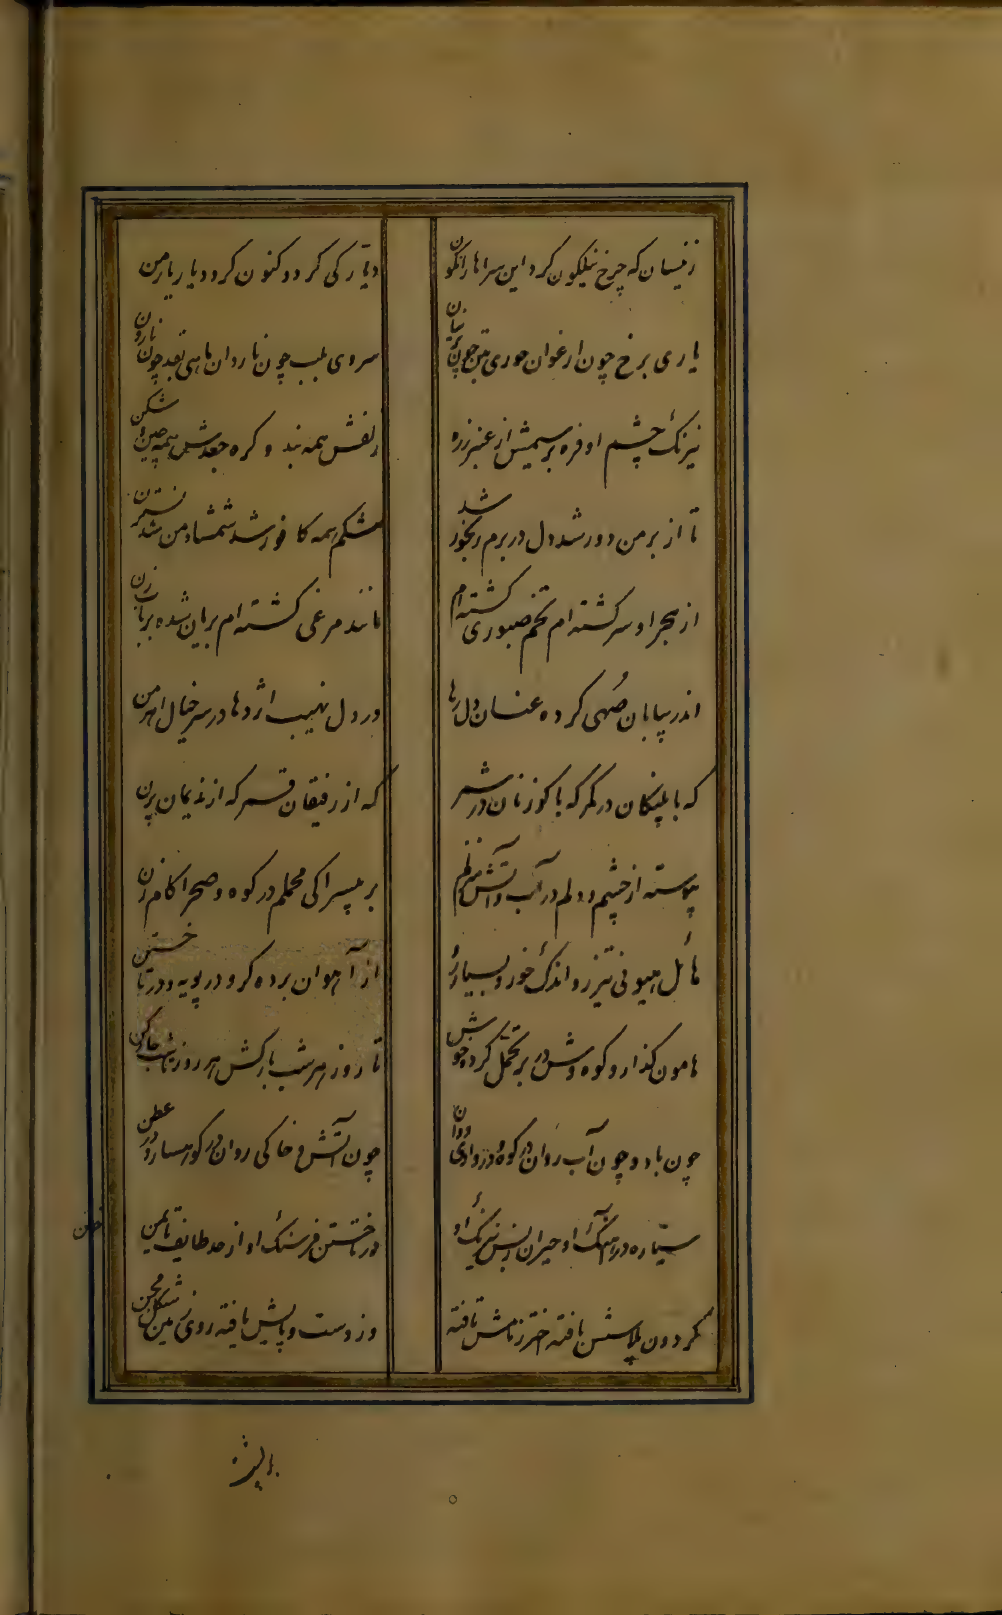 زینسان که چرخ نیلگون کرد این سراها را نگون
دیار کی گردد کنون گرد دیار یار من
یاری برخ چون ارغوان حوری بتن چون پرنیان
سروی بلب چون ناردان ماهی بقد چون نارون
نیرنگ چشم او فره بر سیمش از عنبر زره
زلفش همه بند و گره جعدش همه چین و شکن
تا از بر من دور شد دل در برم رنجور شد
مشکم همه کافور شد شمشاد من شد نسترن
از هجر او سرگشته ام تخم صبوری کشته ام
مانند مرغی گشته ام بریان شده بر بابزن
اندر بیابان سهی کرده عنان دل رها
در دل نهیب اژدها در سر خیال اهرمن
که با پلنگان در کمر که با گوزنان در شمر
که از رفیقان قمر که از ندیمان پرن
پیوسته از چشم و دلم در آب و آتش منزلم
بر بیسراکی محملم در کوه و صحرا کام زن
هامل هیونی تیزرو اندک خور و بسیار
از آهوان برده گرو در پویه و در تاختن
هامون گذار و کوه وش در بر تحمل کرده خوش
تا روز هر شب بارکش هر روز تا شب خارکن
چون باد و چون آب روان در کوه و در وادی دوان
چون آتش و خاکی روان در کوهسار و در عطن
سیاره در آهنگ او حیران ز بس نیرنگ او
در تاختن فرسنگ او از حد طایف تا یمن
گردون پلاسش بافته اختر زمامش تافته
وز دست و پایش یافته روی زمین شکل مجن